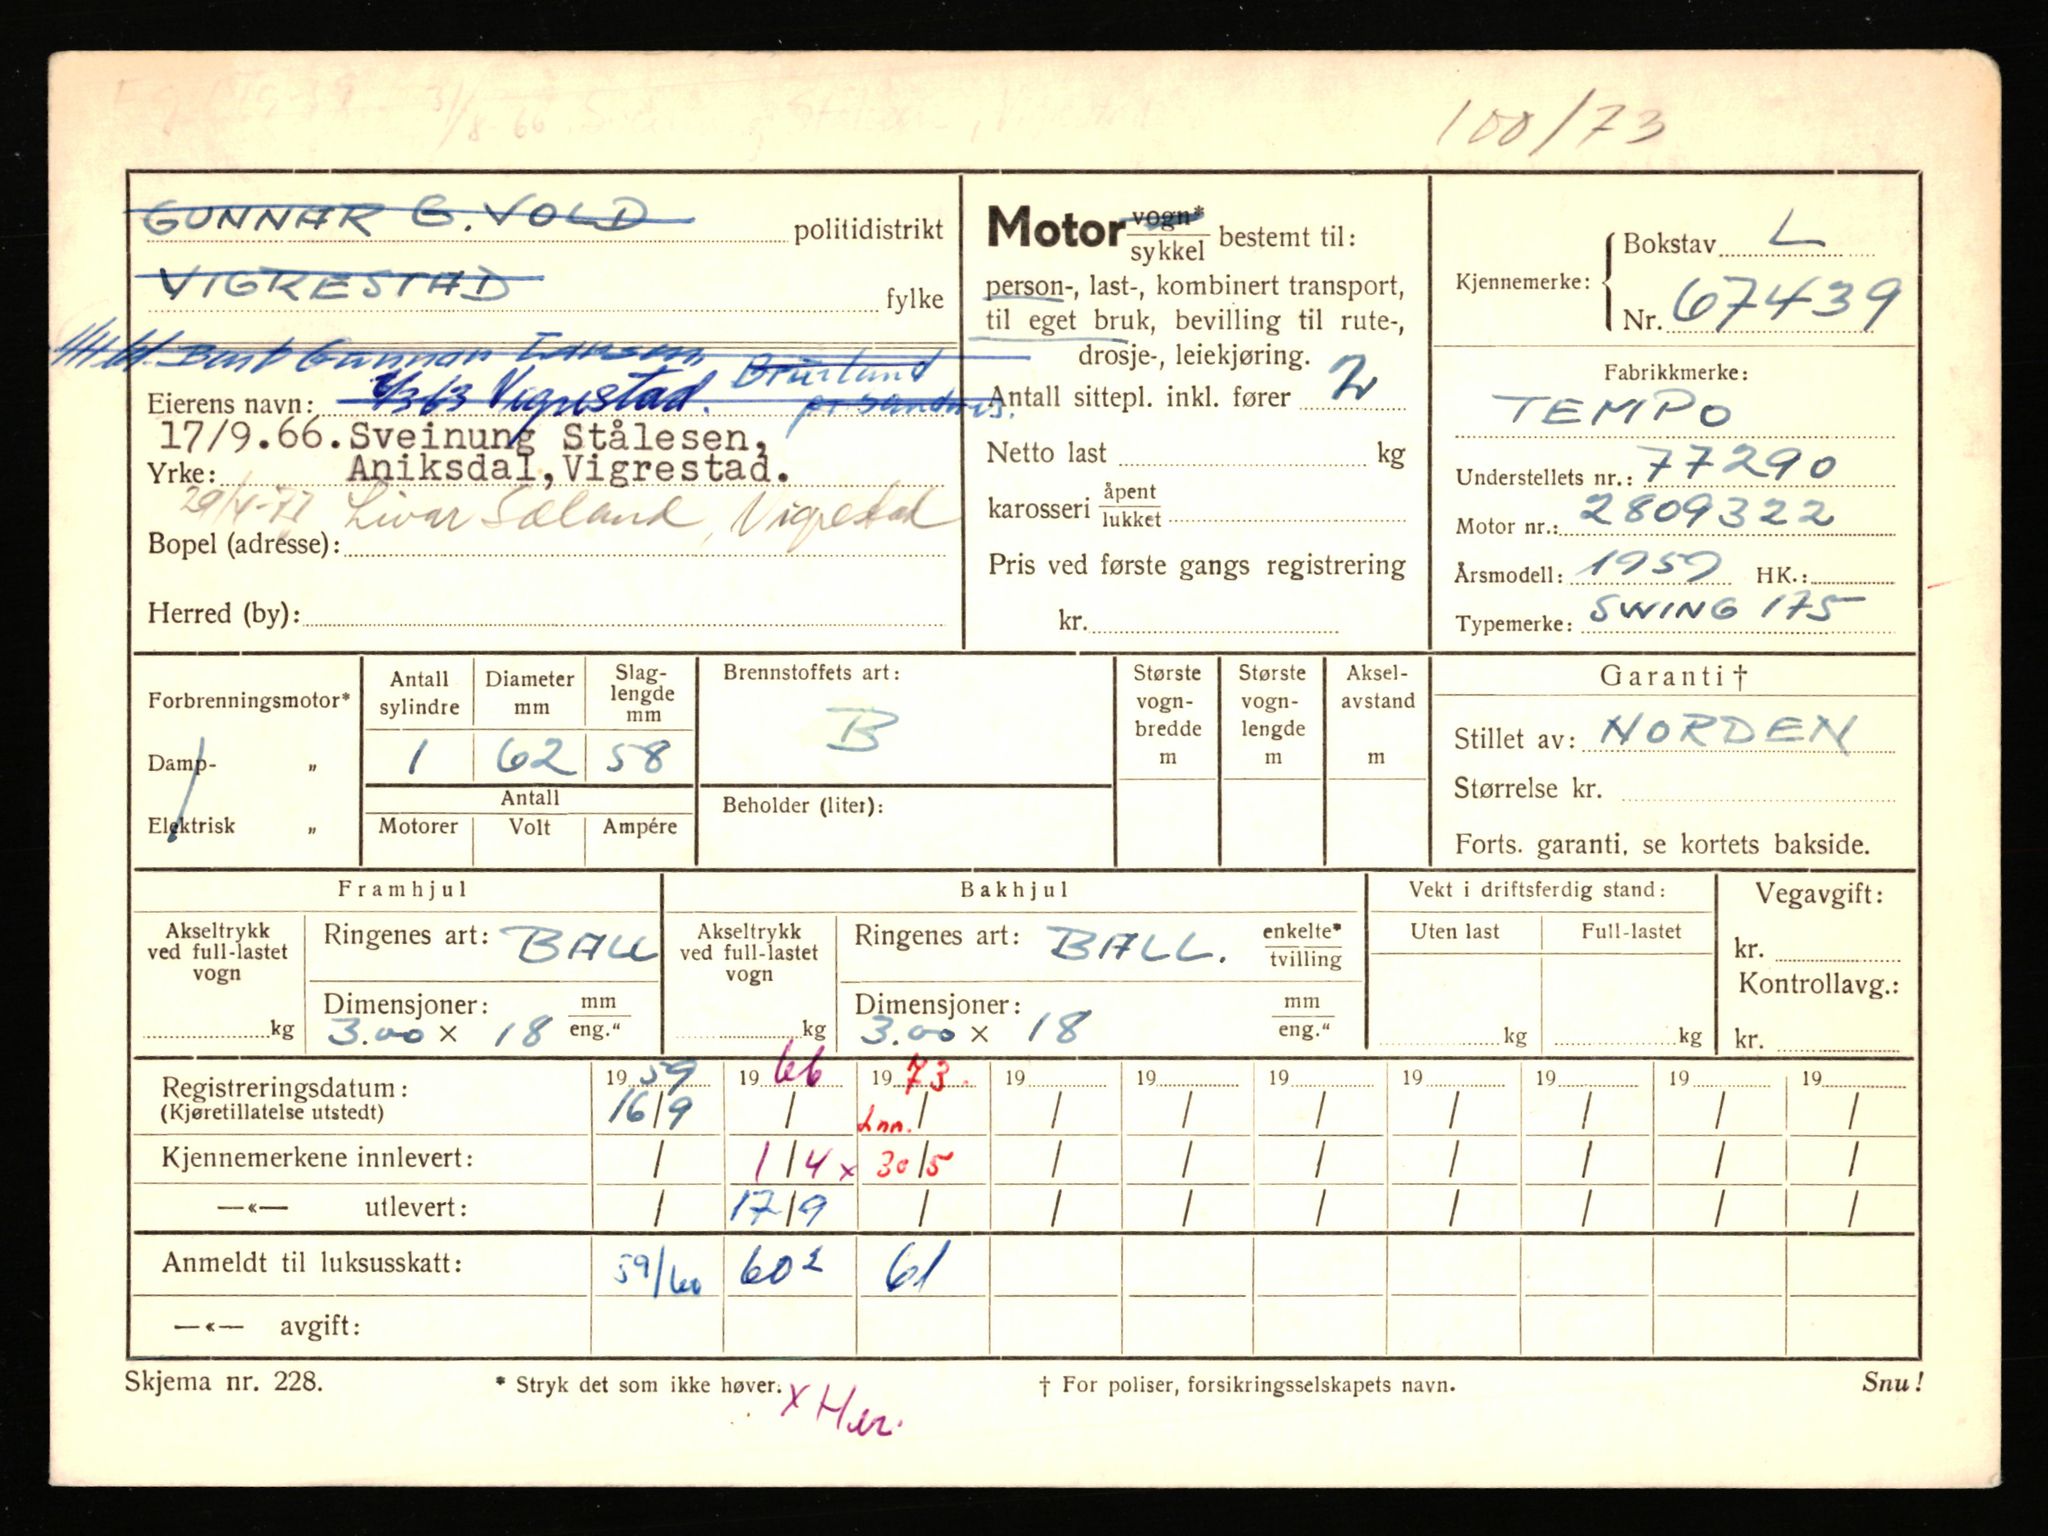 100/73
GUNNAR G. VOLD politidistrikt
VIGRESTAD fylke
Gunnar
Bruland
Eierens navn: 4/3 63 Vigrestad. pr Sandnes.
17/9.66. Sveinung Stålesen,
Yrke: Aniksdal, Vigrestad.
29/4-71 Livar Sæland, Vigrestad
Bopel (adresse):
Herred (by):
Motor vogn* / sykkel bestemt til:
person-, last-, kombinert transport,
til eget bruk, bevilling til rute-,
drosje-, leiekjøring.
Antall sittepl. inkl. fører 2
Netto last kg
karosseri åpent / lukket
Pris ved første gangs registrering
kr.
Kjennemerke: { Bokstav L
Nr. 67439
Fabrikkmerke:
TEMPO
Understellets nr.: 77290
Motor nr.: 2809322
Årsmodell: 1959 HK.:
Typemerke: SWING 175
Forbrenningsmotor*
Damp- „
Elektrisk „
Antall sylindre Diameter mm Slag-lengde mm
1 62 58
Antall
Motorer Volt Ampére
Brennstoffets art:
B
Beholder (liter):
Største vogn-bredde m Største vogn-lengde m Aksel-avstand m
Garanti †
Stillet av: NORDEN
Størrelse kr.
Forts. garanti, se kortets bakside.
Framhjul
Akseltrykk ved full-lastet vogn kg
Ringenes art: BALL
Dimensjoner: mm / eng."
3.00 × 18
Bakhjul
Akseltrykk ved full-lastet vogn kg
Ringenes art: BALL. enkelte* / tvilling
Dimensjoner: mm / eng."
3.00 × 18
Vekt i driftsferdig stand:
Uten last Full-lastet
kg kg
Vegavgift:
kr.
Kontrollavg.:
kr.
Registreringsdatum: 19 59 19 66 19 73. 19 19 19 19 19 19 19
(Kjøretillatelse utstedt) 16/9 / Inn. / / / / / / / /
Kjennemerkene innlevert: / 1/4 x 30/5 / / / / / / /
—«— utlevert: / 17/9 / / / / / / / /
Anmeldt til luksusskatt: 59/60 60² 61
—«— avgift:
Skjema nr. 228. * Stryk det som ikke høver. † For poliser, forsikringsselskapets navn. Snu!
x Her.